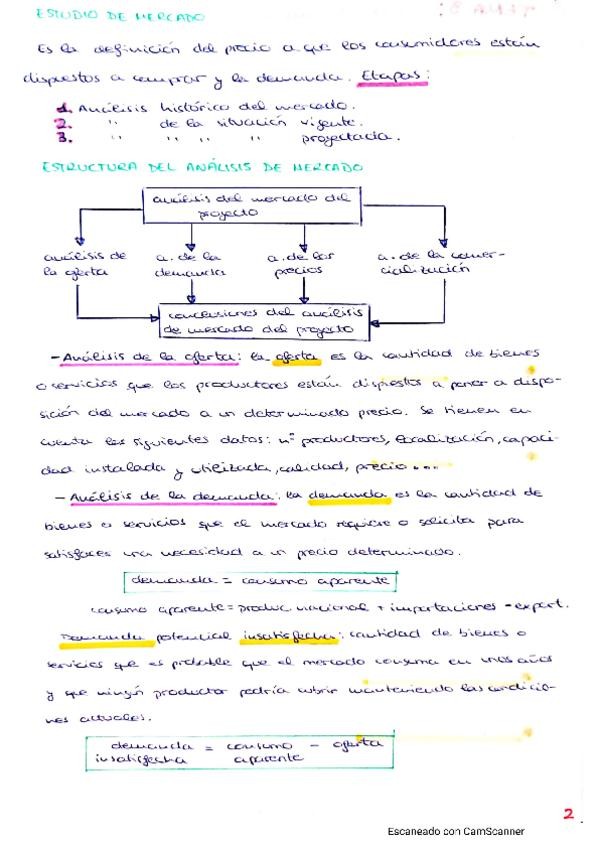 ESTUDIO DE MERCADO
Es la definición del precio a que los consumidores están
dispuestos a comprar y la demanda. Etapas:
1. Análisis histórico del mercado.
2. " de la situación vigente.
3. " " " " proyectada.
ESTRUCTURA DEL ANÁLISIS DE MERCADO
análisis del mercado del
proyecto
análisis de
la oferta
a. de la
demanda
a. de los
precios
a. de la comer-
cialización
conclusiones del análisis
de mercado del proyecto
- Análisis de la oferta: la oferta es la cantidad de bienes
o servicios que los productores están dispuestos a poner a dispo-
sición del mercado a un determinado precio. Se tienen en
cuenta los siguientes datos: nº productores, localización, capaci-
dad instalada y utilizada, calidad, precio...
- Análisis de la demanda: la demanda es la cantidad de
bienes o servicios que el mercado requiere o solicita para
satisfacer una necesidad a un precio determinado.
demanda = consumo aparente
consumo aparente = produc. nacional + importaciones - export.
Demanda potencial insatisfecha: cantidad de bienes o
servicios que es probable que el mercado consuma en unos años
y que ningún productor podría cubrir manteniendo las condicio-
nes actuales.
demanda = consumo - oferta
insatisfecha aparente
2
Escaneado con CamScanner